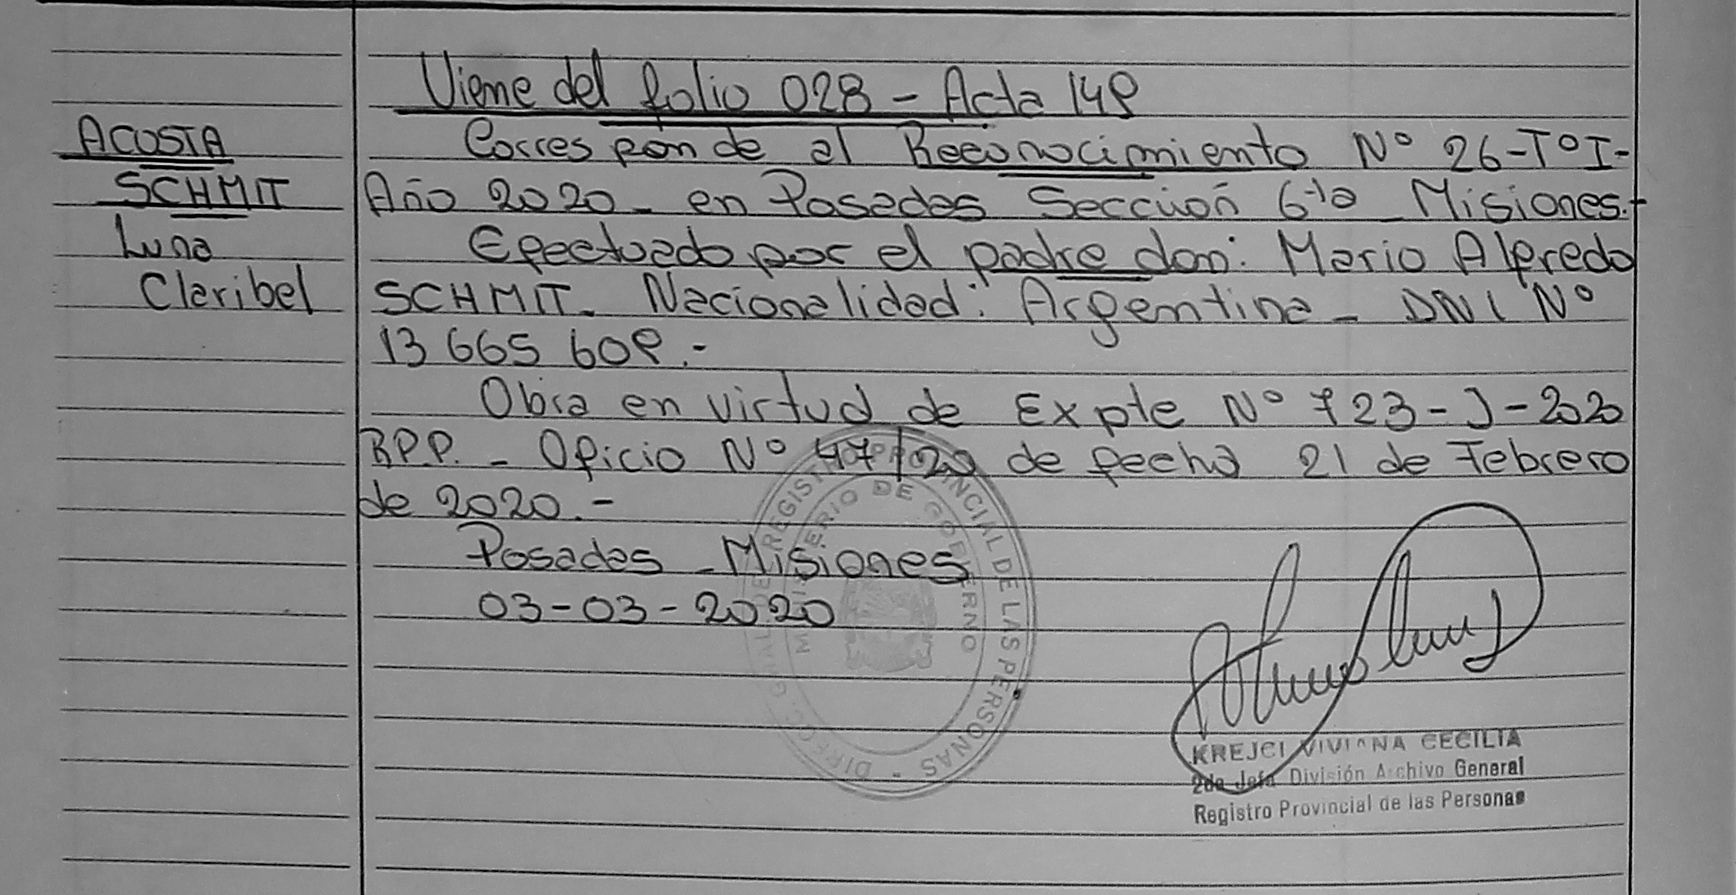 Viene del folio 028 - Acta 149
ACOSTA
SCHMIT
Luna
Claribel
Corresponde al Reconocimiento Nº 26-TºI-
Año 2020 - en Posadas Sección 6ta - Misiones.-
Efectuado por el padre don: Mario Alfredo
SCHMIT - Nacionalidad: Argentina - DNI Nº
13 665 609.-
Obra en virtud de Expte Nº 723-J-2020
R.P.P. - Oficio Nº 47/20 de fecha 21 de Febrero
de 2020.-
Posadas - Misiones
03-03-2020
DIREC. GRAL. DE REGISTRO PROVINCIAL DE LAS PERSONAS -
MINISTERIO DE GOBIERNO
KREJCI VIVIANA CECILIA
2da Jefa División Archivo General
Registro Provincial de las Personas